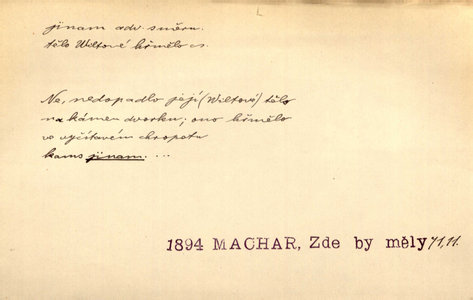 jinam adv. směru.
tělo Wiltové hřmělo
Ne, nedopadlo její (Wiltové) tělo
na kámen dvorku; ono hřmělo
ve vyčítavém chropotu
kams jinam. ...
1894 MACHAR, Zde by měly 71, 11.